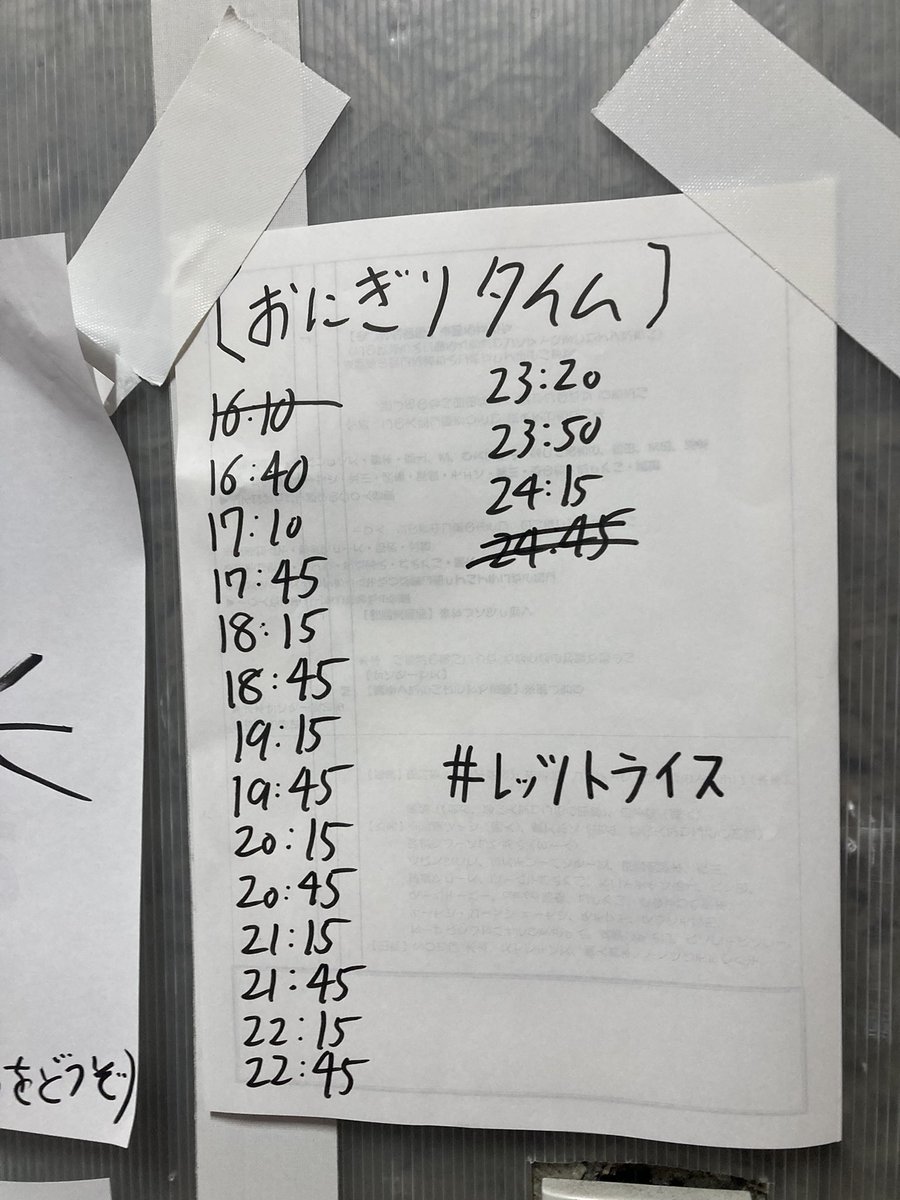 [おにぎりタイム]
16:10
16:40
17:10
17:45
18:15
18:45
19:15
19:45
20:15
20:45
21:15
21:45
22:15
22:45
23:20
23:50
24:15
24:45
#レッツトライス
をどうぞ)